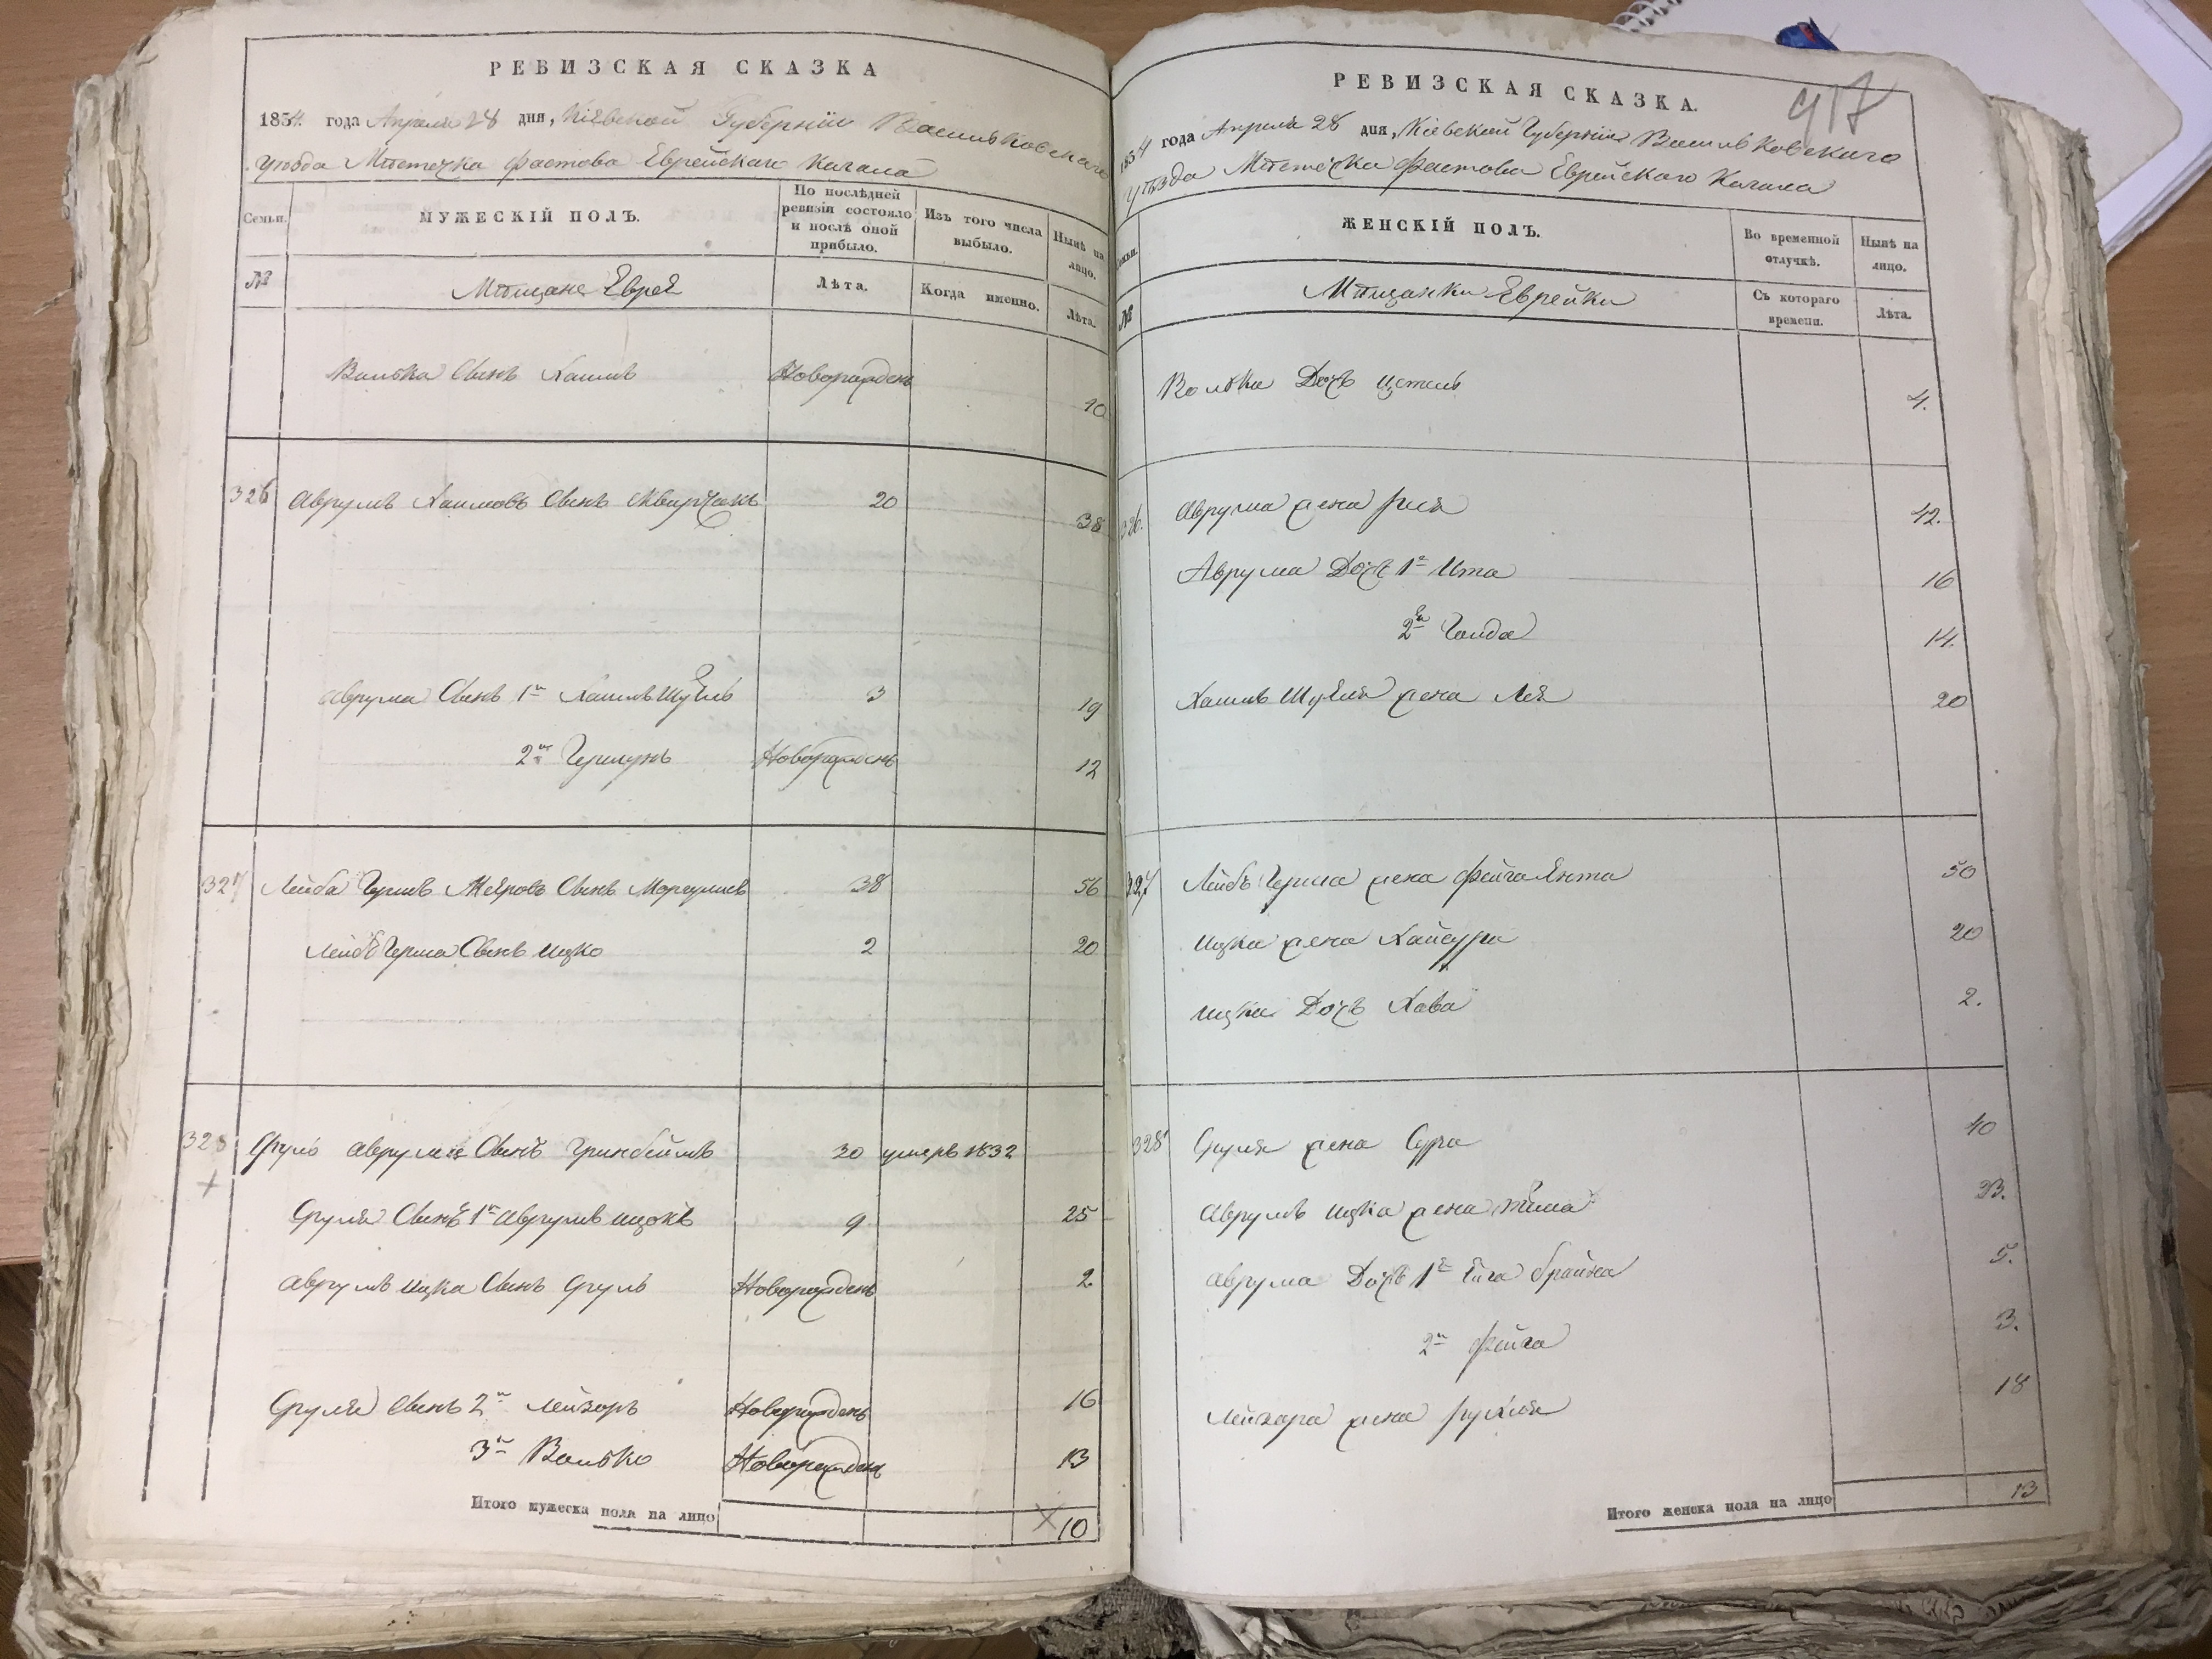 РЕВИЗСКАЯ СКАЗКА
1834 года Апреля 28 дня, Кіевской Губерніи Васильковскаго
уѣзда Мѣстечка Фастова Еврейскаго Кагала
Семьи.
МУЖЕСКІЙ ПОЛЪ.
По послѣдней ревизіи состояло и послѣ оной прибыло.
Изъ того числа выбыло.
Нынѣ на лицо.
№
Мѣщане Евреи
Лѣта.
Когда именно.
Лѣта.
Волька Сынъ Хаимъ Новорожденъ 10
326 Аврумъ Хаимовъ Сынъ Сквирчакъ 20 38
Аврума Сынъ 1й Хаимъ Шуель 3 19
2й Гершунъ Новорожденъ 12
327 Лейба Гершъ Меировъ Сынъ Моргулисъ 38 56
Лейбъ Герша Сынъ Ицко 2 20
328 Сруль Аврумовъ Сынъ Гринбеймъ 30 умеръ 1832
Сруля Сынъ 1й Аврумъ Ицокъ 9 25
Аврумъ Ицка Сынъ Сруль Новорожденъ 2.
Сруля Сынъ 2й Лейзоръ Новорожденъ 16
3й Волько Новорожденъ 13
Итого мужеска пола на лицо 10
РЕВИЗСКАЯ СКАЗКА.
917
1834 года Апреля 28 дня, Кіевской Губерніи Васильковскаго
уѣзда Мѣстечка Фастова Еврейскаго Кагала
Семьи.
ЖЕНСКІЙ ПОЛЪ.
Во временной отлучкѣ.
Нынѣ на лицо.
№
Мѣщанки Еврейки
Съ котораго времени.
Лѣта.
Волька Дочь 4.
326. Аврума жена Рися 42.
Аврума Дочь 1я Ита 16
2я Голда 14.
Хаимъ Шуеля жена Лея 20
327 Лейбъ Герша жена Фейга Ента 50
Ицка жена Хайсура 20
Ицка Дочь Хава 2.
328 Сруля жена Сура 40
Аврумъ Ицка жена 23.
Аврума Дочь 1я Брайна 5.
2я Фейга 3.
Лейзора жена Рухля 18
Итого женска пола на лицо 13